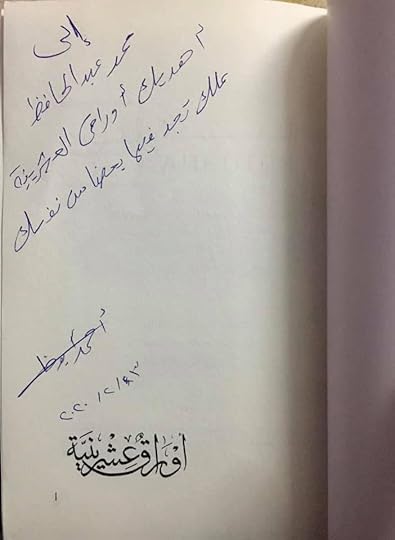 إلى
محمد عبد الحافظ
أهديك أوراقي العشرينية
علك تجد فيها بعضا من نفسك
أحمد
أوراق عشرينية
١